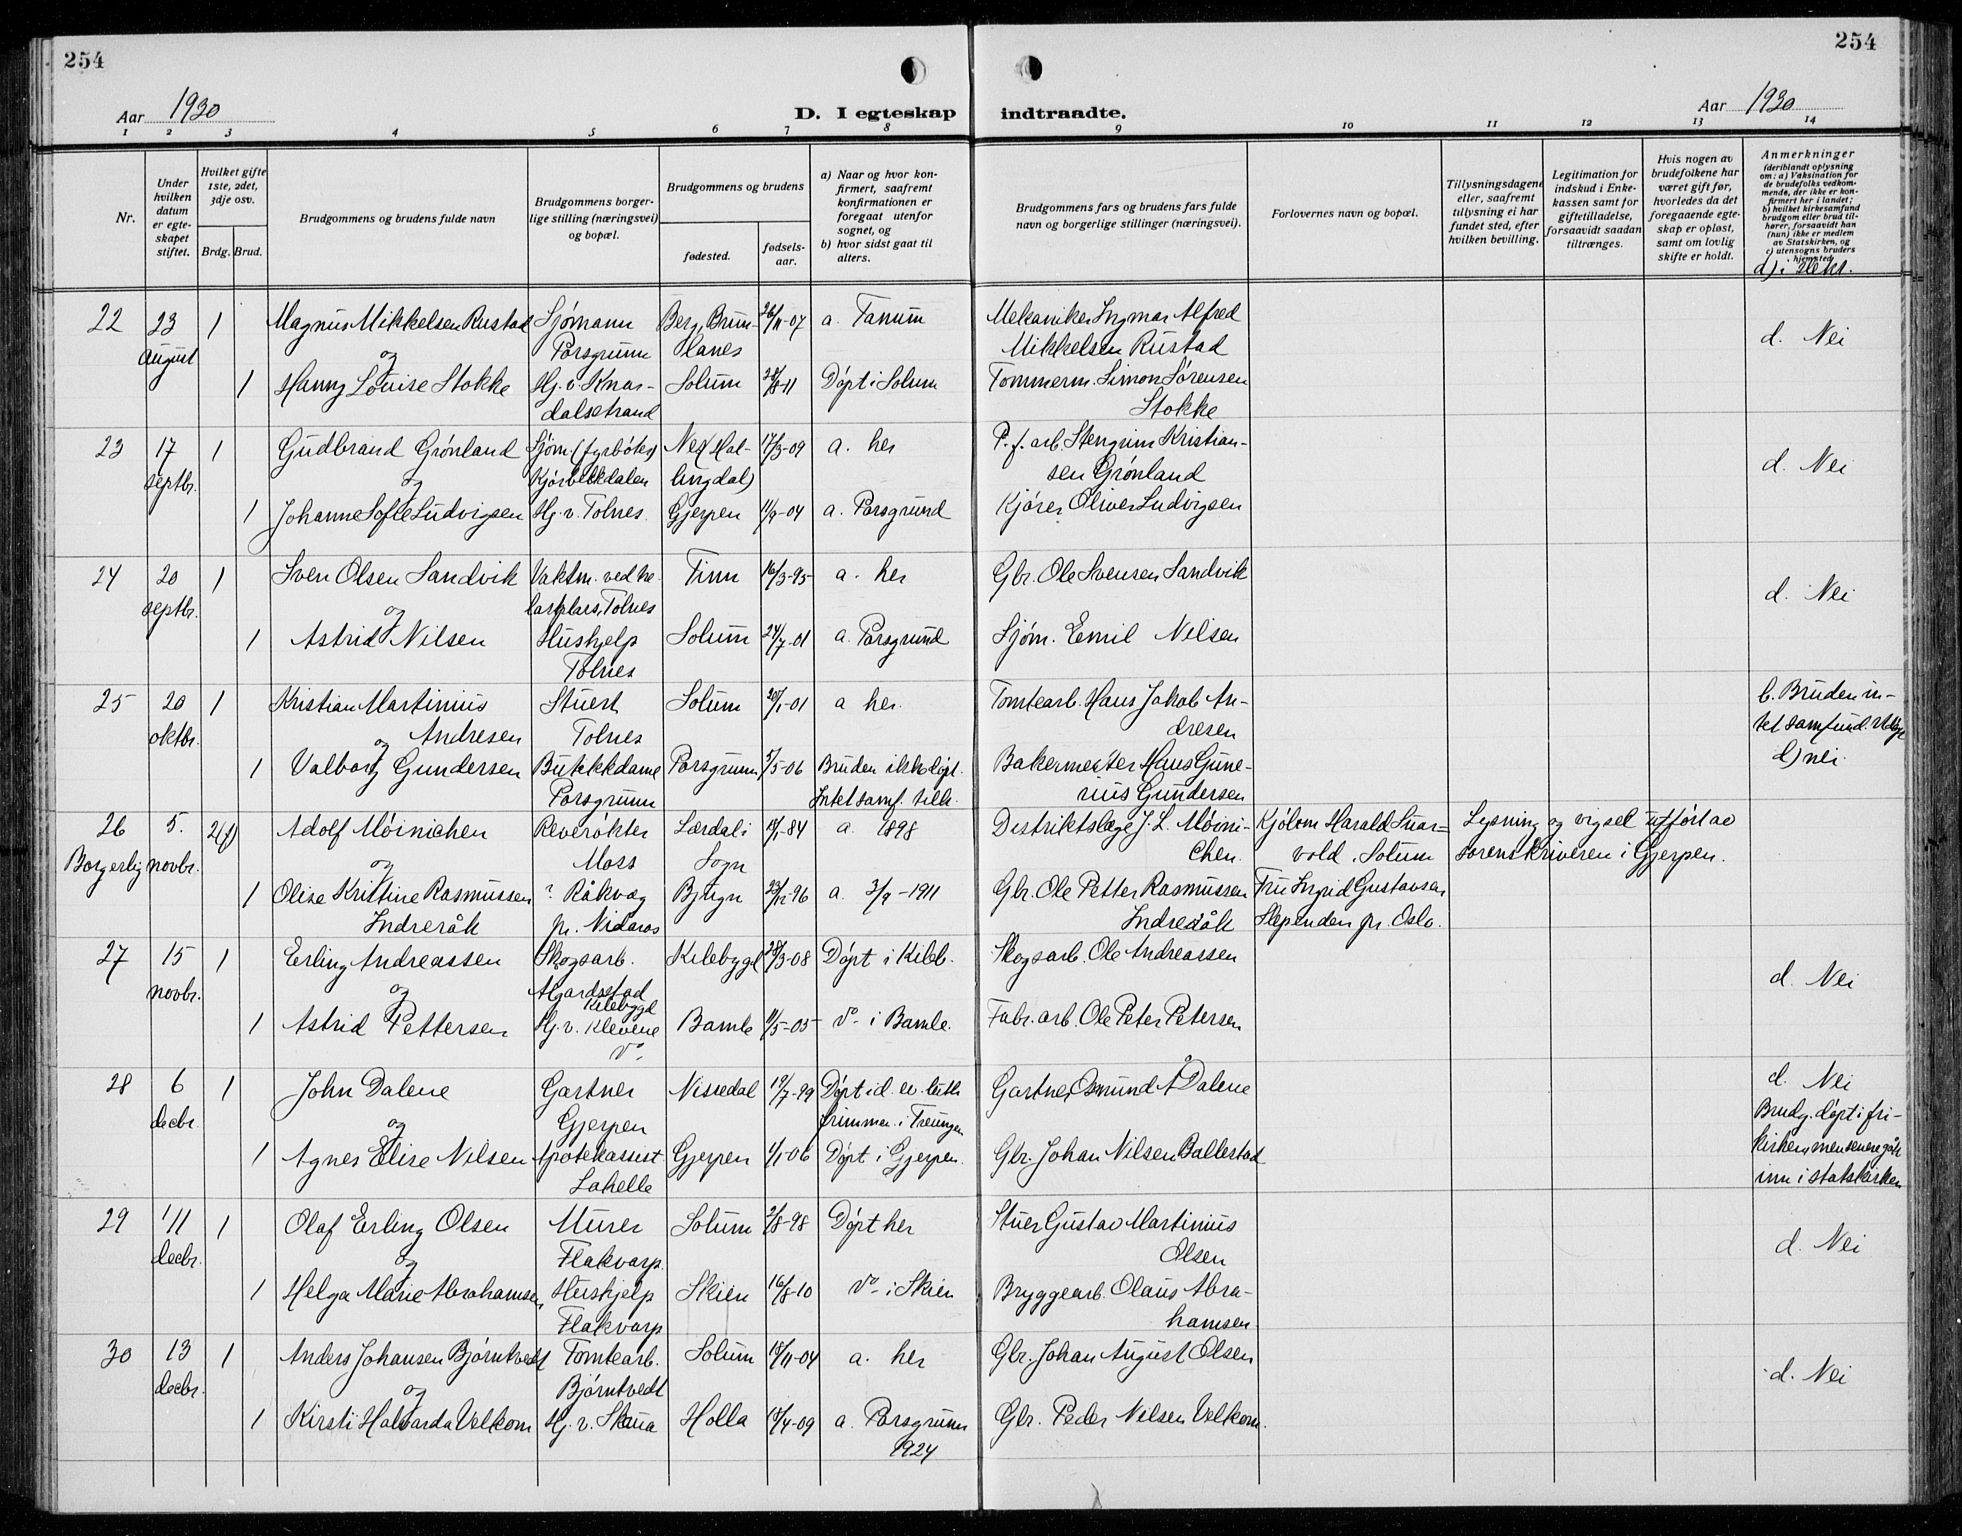 254
254
Aar 1930
D. I egteskap
indtraadte.
Aar 1930
1 2 3 4 5 6 7 8 9 10 11 12 13 14
Nr.
Under hvilken datum er egteskapet stiftet.
Hvilket gifte 1ste, 2det, 3dje osv.
Brdg. Brud.
Brudgommens og brudens fulde navn
Brudgommens borgerlige stilling (næringsvei) og bopæl.
Brudgommens og brudens
fødested.
fødselsaar.
a) Naar og hvor konfirmert, saafremt konfirmationen er foregaat utenfor sognet, og
b) hvor sidst gaat til alters.
Brudgommens fars og brudens fars fulde navn og borgerlige stillinger (næringsvei).
Forlovernes navn og bopæl.
Tillysningsdagene eller, saafremt tillysning ei har fundet sted, efter hvilken bevilling.
Legitimation for indskud i Enkekassen samt for giftetilladelse, forsaavidt saadan tiltrænges.
Hvis nogen av brudefolkene har været gift før, hvorledes da det foregaaende egteskap er opløst, samt om lovlig skifte er holdt.
Anmerkninger (deriblandt oplysning om: a) Vaksination for de brudefolks vedkommende, der ikke er konfirmert her i landet; b) hvilket kirkesamfund brudgom eller brud tilhører, forsaavidt han (hun) ikke er medlem av Statskirken, og c) utensogns bruders hjemsted
d) i slekt.
22 23 1 Magnus Mikkelsen Rustad Sjømann Berg, Brun- 26/11-07 a. Tanum Mekaniker Ingmar Alfred
august og Porsgrunn lanes Mikkelsen Rustad d. Nei
1 Hanny Louise Stokke Hj. v. Knar- Solum 28/8-11 Døpt i Solum Tømmerm. Simon Sørensen
dalstrand Stokke
23 17 1 Gudbrand Grønland Sjøm. (fyrbøter) Nes (Hal- 17/3-09 a. her P. f. arb. Stengrim Kristian-
septbr. og Kjørbekkdalen lingdal) sen Grønland d. Nei
1 Johanne Sofie Ludvigsen Hj. v. Tolnes. Gjerpen 11/9-04 a. Porsgrund Kjører Oliver Ludvigsen
24 20 1 Sven Olsen Sandvik Vaktm. ved he- Tinn 16/3-95 a. her Gbr. Ole Svensen Sandvik
septbr. og Tolnes d. Nei
1 Astrid Nilsen Hushjelp Solum 24/7-01 a. Porsgrund Sjøm. Emil Nilsen
Tolnes
25 20 1 Kristian Martinius Stuert Solum 20/1-01 a her. Tomtearb. Hans Jakob An- b. Bruden in-
oktbr. og Andresen Tolnes dresen tet samfund.
1 Valborg Gundersen Butikkdame Porsgrunn 5/5-06 Bruden ikke døpt. Bakermester Hans Gune- d) nei.
Porsgrunn Intet samf. tilh. rius Gundersen
26 5. 2(f) Adolf Møinichen Reverøkter Lærdal i 19/1-84 a. 1898 Distriktslæge J. L. Møini- Kjølem Harald Snar- Lysning og vigsel utført av
Borgerlig novbr. og Moss Sogn chen. vold, Solum sorenskriveren i Gjerpen.
1 Olise Kristine Rasmussen ? Råkvåg Bjugn 23/12-96 a. 3/9-1911 Gbr. Ole Petter Rasmussen Fru Ingrid Gustavsen
Indreråk pr. Nidaros Indreråk Slependen pr. Oslo.
27 15 1 Erling Andreassen Skogsarb. Kilebygd 28/3-08 Døpt i Kileb. Skogsarb. Ole Andreassen
novbr. og Kilebygd d. Nei
1 Astrid Pettersen Hj. v. Klevene Bamle 11/5-05 do i Bamle. Fabr. arb. Ole Peter Petersen
do
28 6 1 John Dalene Gartner Nissedal 19/7-99 Døpt i d. ev. luth. Gartner Osmund Å Dalene d. Nei
decbr. og Gjerpen frimen. i Treungen Brudg. døpt i fri-
1 Agnes Elise Nilsen Apotekassist Gjerpen 4/1-06 Døpt i Gjerpen. Gbr. Johan Nilsen Ballestad kirken, men senere gått
Lahelle inn i statskirken
29 11 1 Olaf Erling Olsen Murer Solum 2/8-98 Døpt her Stuer Gustav Martinius
decbr. og Flakvarp. Olsen d. Nei
1 Helga Marie Abrahamsen Hushjelp Skien 16/8-10 do i Skien Bryggearb. Olaus Abra-
Flakvarp hamsen.
30 13 1 Anders Johansen Bjørntvedt Tomtearb. Solum 15/11-04 a. her Gbr. Johan August Olsen
decbr. og Bjørntvedt d. Nei
1 Kirsti Halvarda Velkom Hj. v. Skaua Holla 15/4-09 a. Porsgrunn Gbr. Peder Nilsen Velkom.
1924